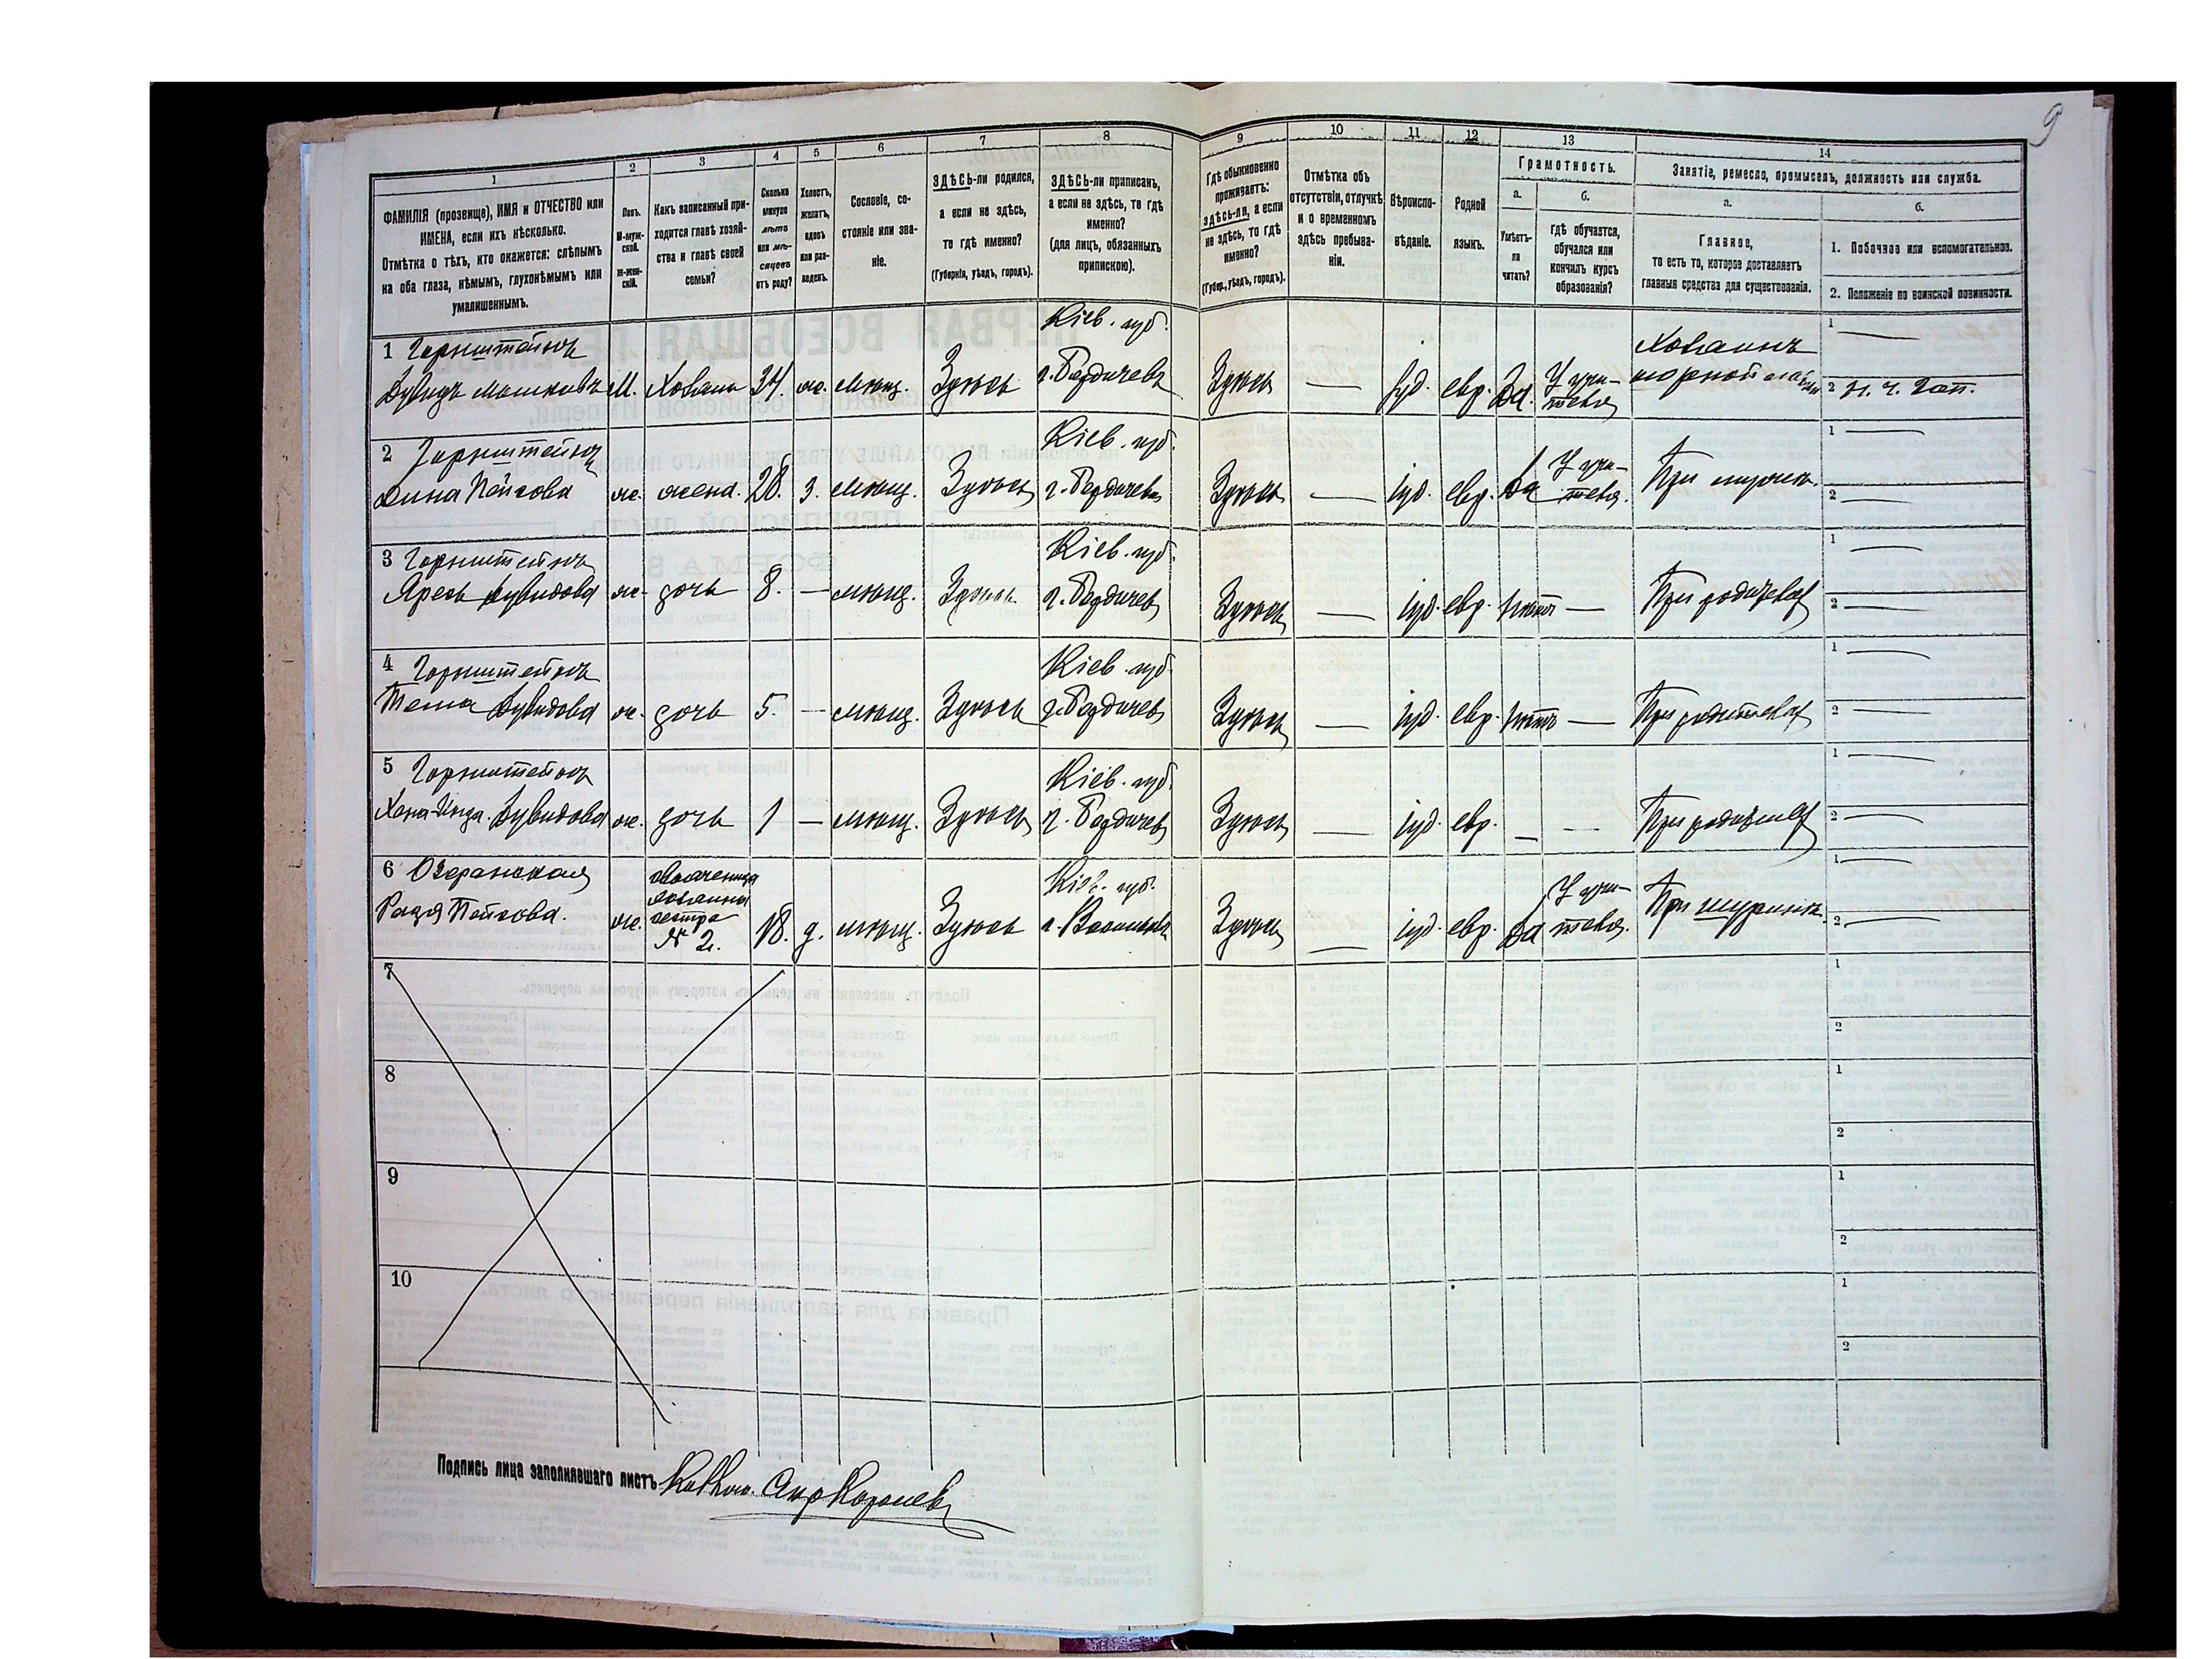 9
1
2
3
4
5
6
7
8
9
10
11
12
13
14
ФАМИЛІЯ (прозвище), ИМЯ и ОТЧЕСТВО или
ИМЕНА, если ихъ нѣсколько.
Отмѣтка о тѣхъ, кто окажется: слѣпымъ
на оба глаза, нѣмымъ, глухонѣмымъ или
умалишеннымъ.
Полъ.
М-муж-
ской.
Ж-жен-
скій.
Какъ записанный при-
ходится главѣ хозяй-
ства и главѣ своей
семьи?
Сколько
минуло
лѣтъ
или мѣ-
сяцевъ
отъ роду?
Холостъ,
женатъ,
вдовъ
или раз-
веденъ.
Сословіе, со-
стояніе или зва-
ніе.
ЗДѢСЬ-ли родился,
а если не здѣсь,
то гдѣ именно?
(Губернія, уѣздъ, городъ).
ЗДѢСЬ-ли приписанъ,
а если не здѣсь, то гдѣ
именно?
(для лицъ, обязанныхъ
припискою).
Гдѣ обыкновенно
проживаетъ:
здѣсь-ли, а если
не здѣсь, то гдѣ
именно?
(Губер., уѣздъ, городъ).
Отмѣтка объ
отсутствіи, отлучкѣ
и о временномъ
здѣсь пребыва-
ніи.
Вѣроиспо-
вѣданіе.
Родной
языкъ.
Грамотность.
а.
Умѣетъ-
ли
читать?
б.
гдѣ обучается,
обучался или
кончилъ курсъ
образованія?
Занятіе, ремесло, промыселъ, должность или служба.
а.
Главное,
то есть то, которое доставляетъ
главныя средства для существованія.
б.
1. Побочное или вспомогательное.
2. Положеніе по воинской повинности.
1 Горнштейнъ Кіев. губ. Хозяинъ 1 —
Дувидъ Мошковъ М. Хозяинъ 34. ж. мѣщ. Здѣсь г. Бердичевъ Здѣсь — іуд. евр. Да. У учи-
теля 2
2 Горнштейнъ Кіев. губ. 1 —
Дина Пейсова ж. жена. 28. з. мѣщ. Здѣсь г. Бердичевъ Здѣсь — іуд. евр. Да У учи-
теля. При мужѣ. 2 —
3 Горнштейнъ Кіев. губ. 1 —
Дувидова ж. дочь 8. — мѣщ. Здѣсь г. Бердичевъ Здѣсь — іуд. евр. нѣтъ — При родителяхъ 2 —
4 Горнштейнъ Кіев. губ. 1 —
Дувидова ж. дочь 5. — мѣщ. Здѣсь г. Бердичевъ Здѣсь — іуд. евр. нѣтъ — При родителяхъ 2 —
5 Горнштейнъ Кіев. губ. 1 —
Дувидова ж. дочь 1 — мѣщ. Здѣсь г. Бердичевъ Здѣсь — іуд. евр. — — При родителяхъ 2 —
6 Озеранская свояченица
хозяина
сестра
№ 2. Кіев. губ. 1 —
Пейсова. ж. 18. д. мѣщ. Здѣсь г. Здѣсь — іуд. евр. Да У учи-
теля. При шуринѣ. 2 —
7 1
2
8 1
2
9 1
2
10 1
2
Подпись лица заполнявшаго листъ